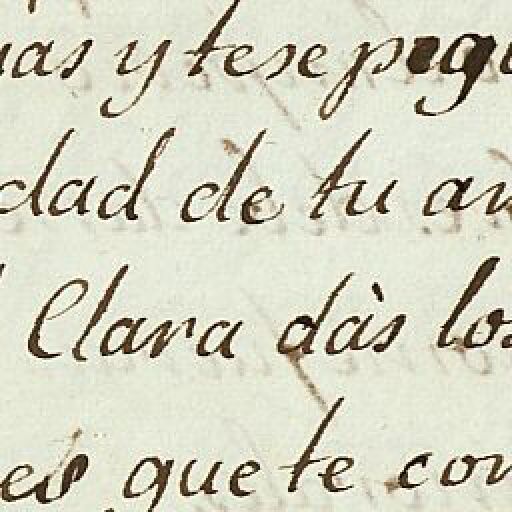 ias y tese pegu
dad de tu am
Clara dàs los
es que te con